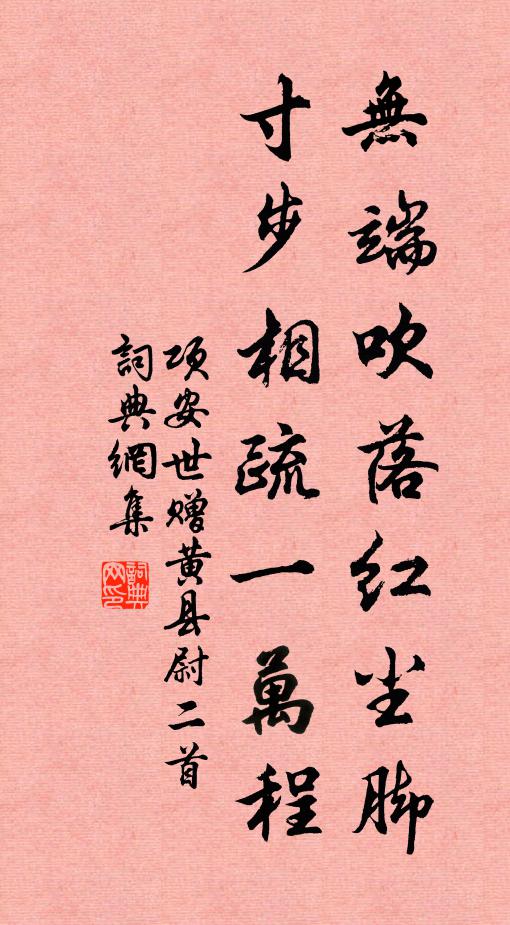 無端吹落红尘脚
寸步相疏一萬程
项安世赠黄县尉二首
詞典網集
詞典网印